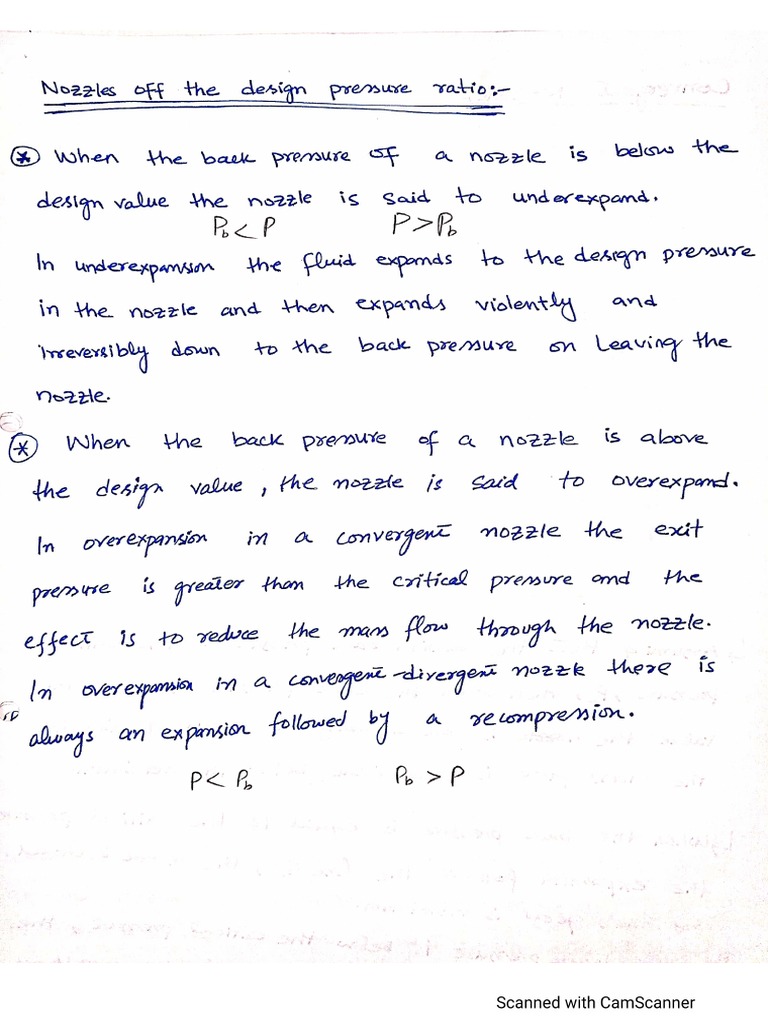 Nozzles off the design pressure ratio:-
* When the back pressure of a nozzle is below the
design value the nozzle is said to underexpand.
Pb < P P > Pb
In underexpansion the fluid expands to the design pressure
in the nozzle and then expands violently and
irreversibly down to the back pressure on leaving the
nozzle.
* When the back pressure of a nozzle is above
the design value, the nozzle is said to overexpand.
In overexpansion in a convergent nozzle the exit
pressure is greater than the critical pressure and the
effect is to reduce the mass flow through the nozzle.
In overexpansion in a convergent-divergent nozzle there is
always an expansion followed by a recompression.
P < Pb Pb > P
Scanned with CamScanner